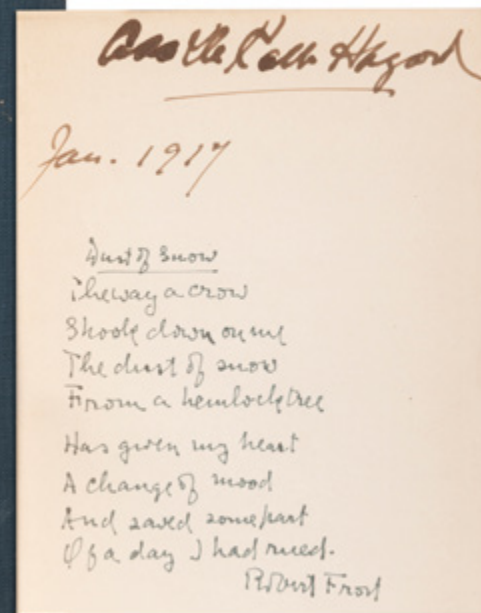 Jan. 1917
Dust of Snow
The way a crow
Shook down on me
The dust of snow
From a hemlock tree
Has given my heart
A change of mood
And saved some part
Of a day I had rued.
Robert Frost